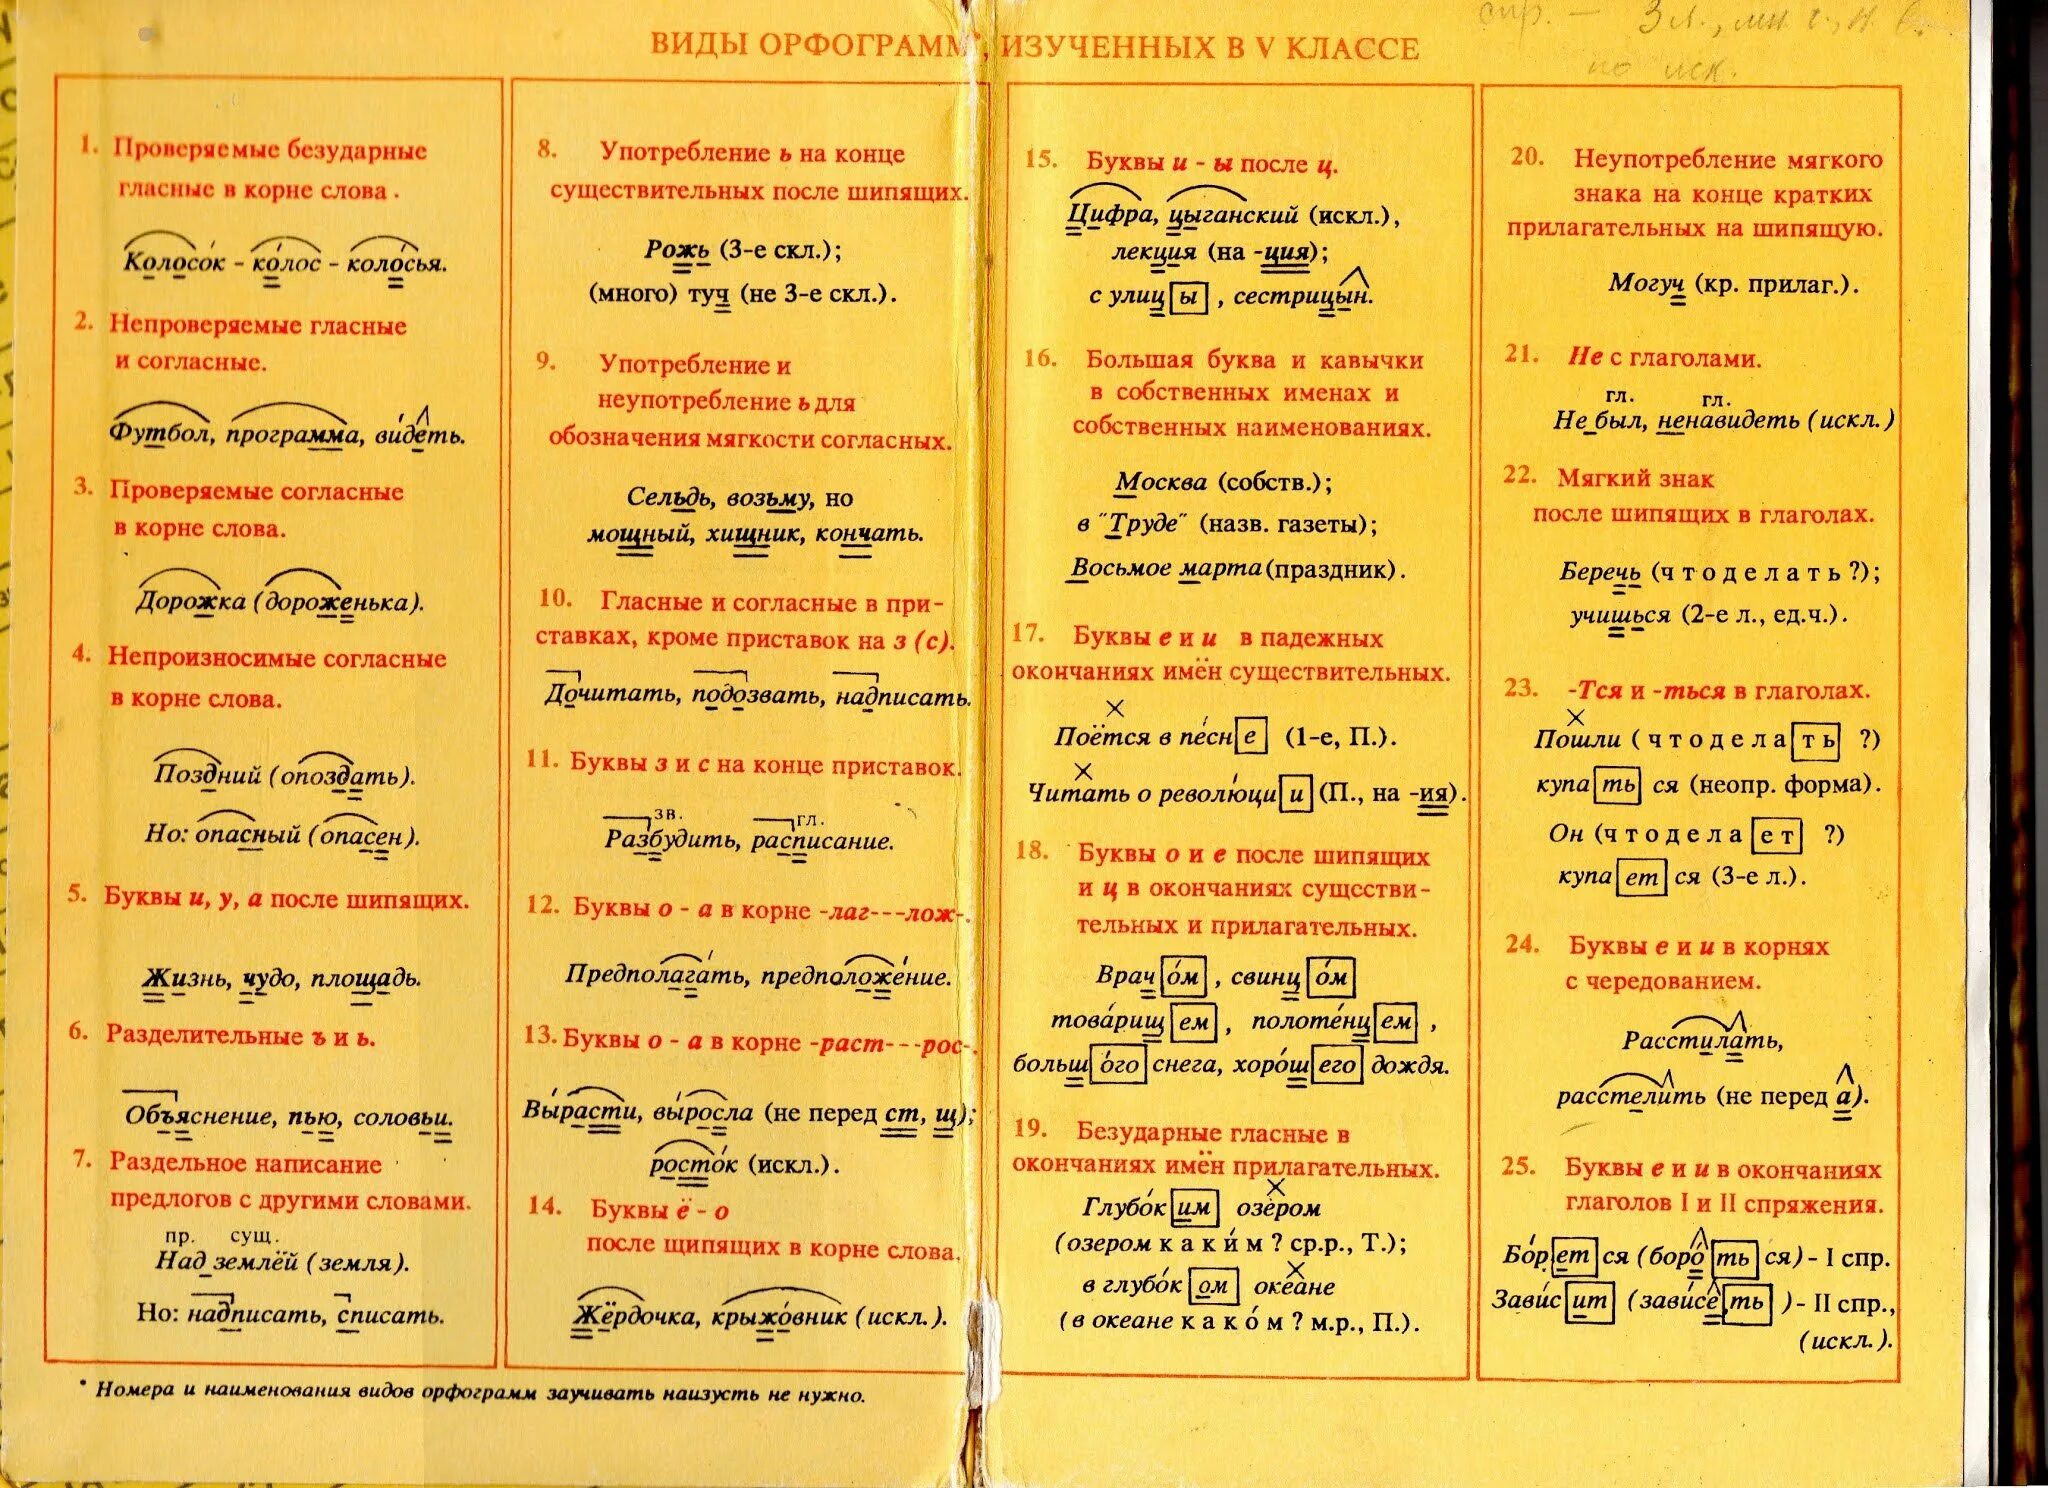 спр. – 3 л., мн.ч., н.
по иск.
ВИДЫ ОРФОГРАММ*, ИЗУЧЕННЫХ В V КЛАССЕ
1. Проверяемые безударные
гласные в корне слова.
Колосо́к - ко́лос - коло́сья.
2. Непроверяемые гласные
и согласные.
Футбол, программа, ви́деть.
3. Проверяемые согласные
в корне слова.
Дорожка (дороженька).
4. Непроизносимые согласные
в корне слова.
Поздний (опоздать).
Но: опасный (опасен).
5. Буквы и, у, а после шипящих.
Жизнь, чудо, площадь.
6. Разделительные ъ и ь.
Объяснение, пью, соловьи.
7. Раздельное написание
предлогов с другими словами.
пр. сущ.
Над землёй (земля).
Но: надписать, списать.
8. Употребление ь на конце
существительных после шипящих.
Рожь (3-е скл.);
(много) туч (не 3-е скл.).
9. Употребление и
неупотребление ь для
обозначения мягкости согласных.
Сельдь, возьму, но
мощный, хищник, кончать.
10. Гласные и согласные в при-
ставках, кроме приставок на з (с).
Дочитать, подозвать, надписать.
11. Буквы з и с на конце приставок.
зв. гл.
Разбудить, расписание.
12. Буквы о - а в корне -лаг---лож-.
Предполага́ть, предположе́ние.
13. Буквы о - а в корне -раст---рос-.
Вы́расти, вы́росла (не перед ст, щ);
росто́к (искл.).
14. Буквы ё - о
после щипящих в корне слова.
Жёрдочка, крыжо́вник (искл.).
15. Буквы и - ы после ц.
Цифра, цыганский (искл.),
лекция (на -ция);
с улицы, сестрицын.
16. Большая буква и кавычки
в собственных именах и
собственных наименованиях.
Москва (собств.);
в "Труде" (назв. газеты);
Восьмое марта (праздник).
17. Буквы е и и в падежных
окончаниях имён существительных.
Поётся в пе́сне (1-е, П.).
Читать о револю́ции (П., на -ия).
18. Буквы о и е после шипящих
и ц в окончаниях существи-
тельных и прилагательных.
Врачо́м, свинцо́м
това́рищем, полоте́нцем,
большо́го снега, хоро́шего дождя.
19. Безударные гласные в
окончаниях имён прилагательных.
Глубо́ким озером
(озером каки́м? ср.р., Т.);
в глубо́ком океане
(в океане како́м? м.р., П.).
20. Неупотребление мягкого
знака на конце кратких
прилагательных на шипящую.
Могуч (кр. прилаг.).
21. Не с глаголами.
гл. гл.
Не был, ненавидеть (искл.)
22. Мягкий знак
после шипящих в глаголах.
Беречь (что делать?);
учишься (2-е л., ед.ч.).
23. -Тся и -ться в глаголах.
Пошли (что делать?)
купаться (неопр. форма).
Он (что делает?)
купается (3-е л.).
24. Буквы е и и в корнях
с чередованием.
Расстилать,
расстелить (не перед а).
25. Буквы е и и в окончаниях
глаголов I и II спряжения.
Бо́рется (боро́ться) - I спр.
Зави́сит (зави́сеть) - II спр.,
(искл.).
* Номера и наименования видов орфограмм заучивать наизусть не нужно.